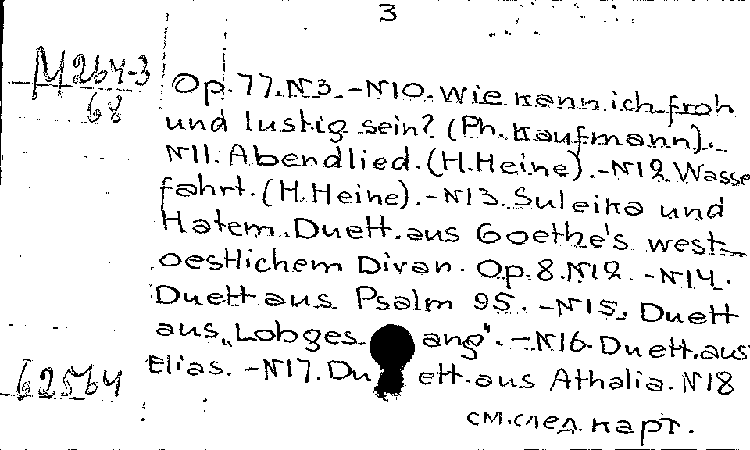 3
M 264-3
68
Op.77.N3.-N10.Wie kann ich froh
und lustig sein? (Ph. Kaufmann).-
N11.Abendlied.(H.Heine).-N12.Wasse
fahrt.(H.Heine).-N13.Suleika und
Hatem.Duett.aus Goethe's west-
oestlichem Divan. Op.8.N12.-N14.
Duett aus Psalm 95.-N15.Duett
aus „Lobgesang".-N16.Duett.aus
Elias.-N17.Duett.aus Athalia.N18
62564
см.след.карт.